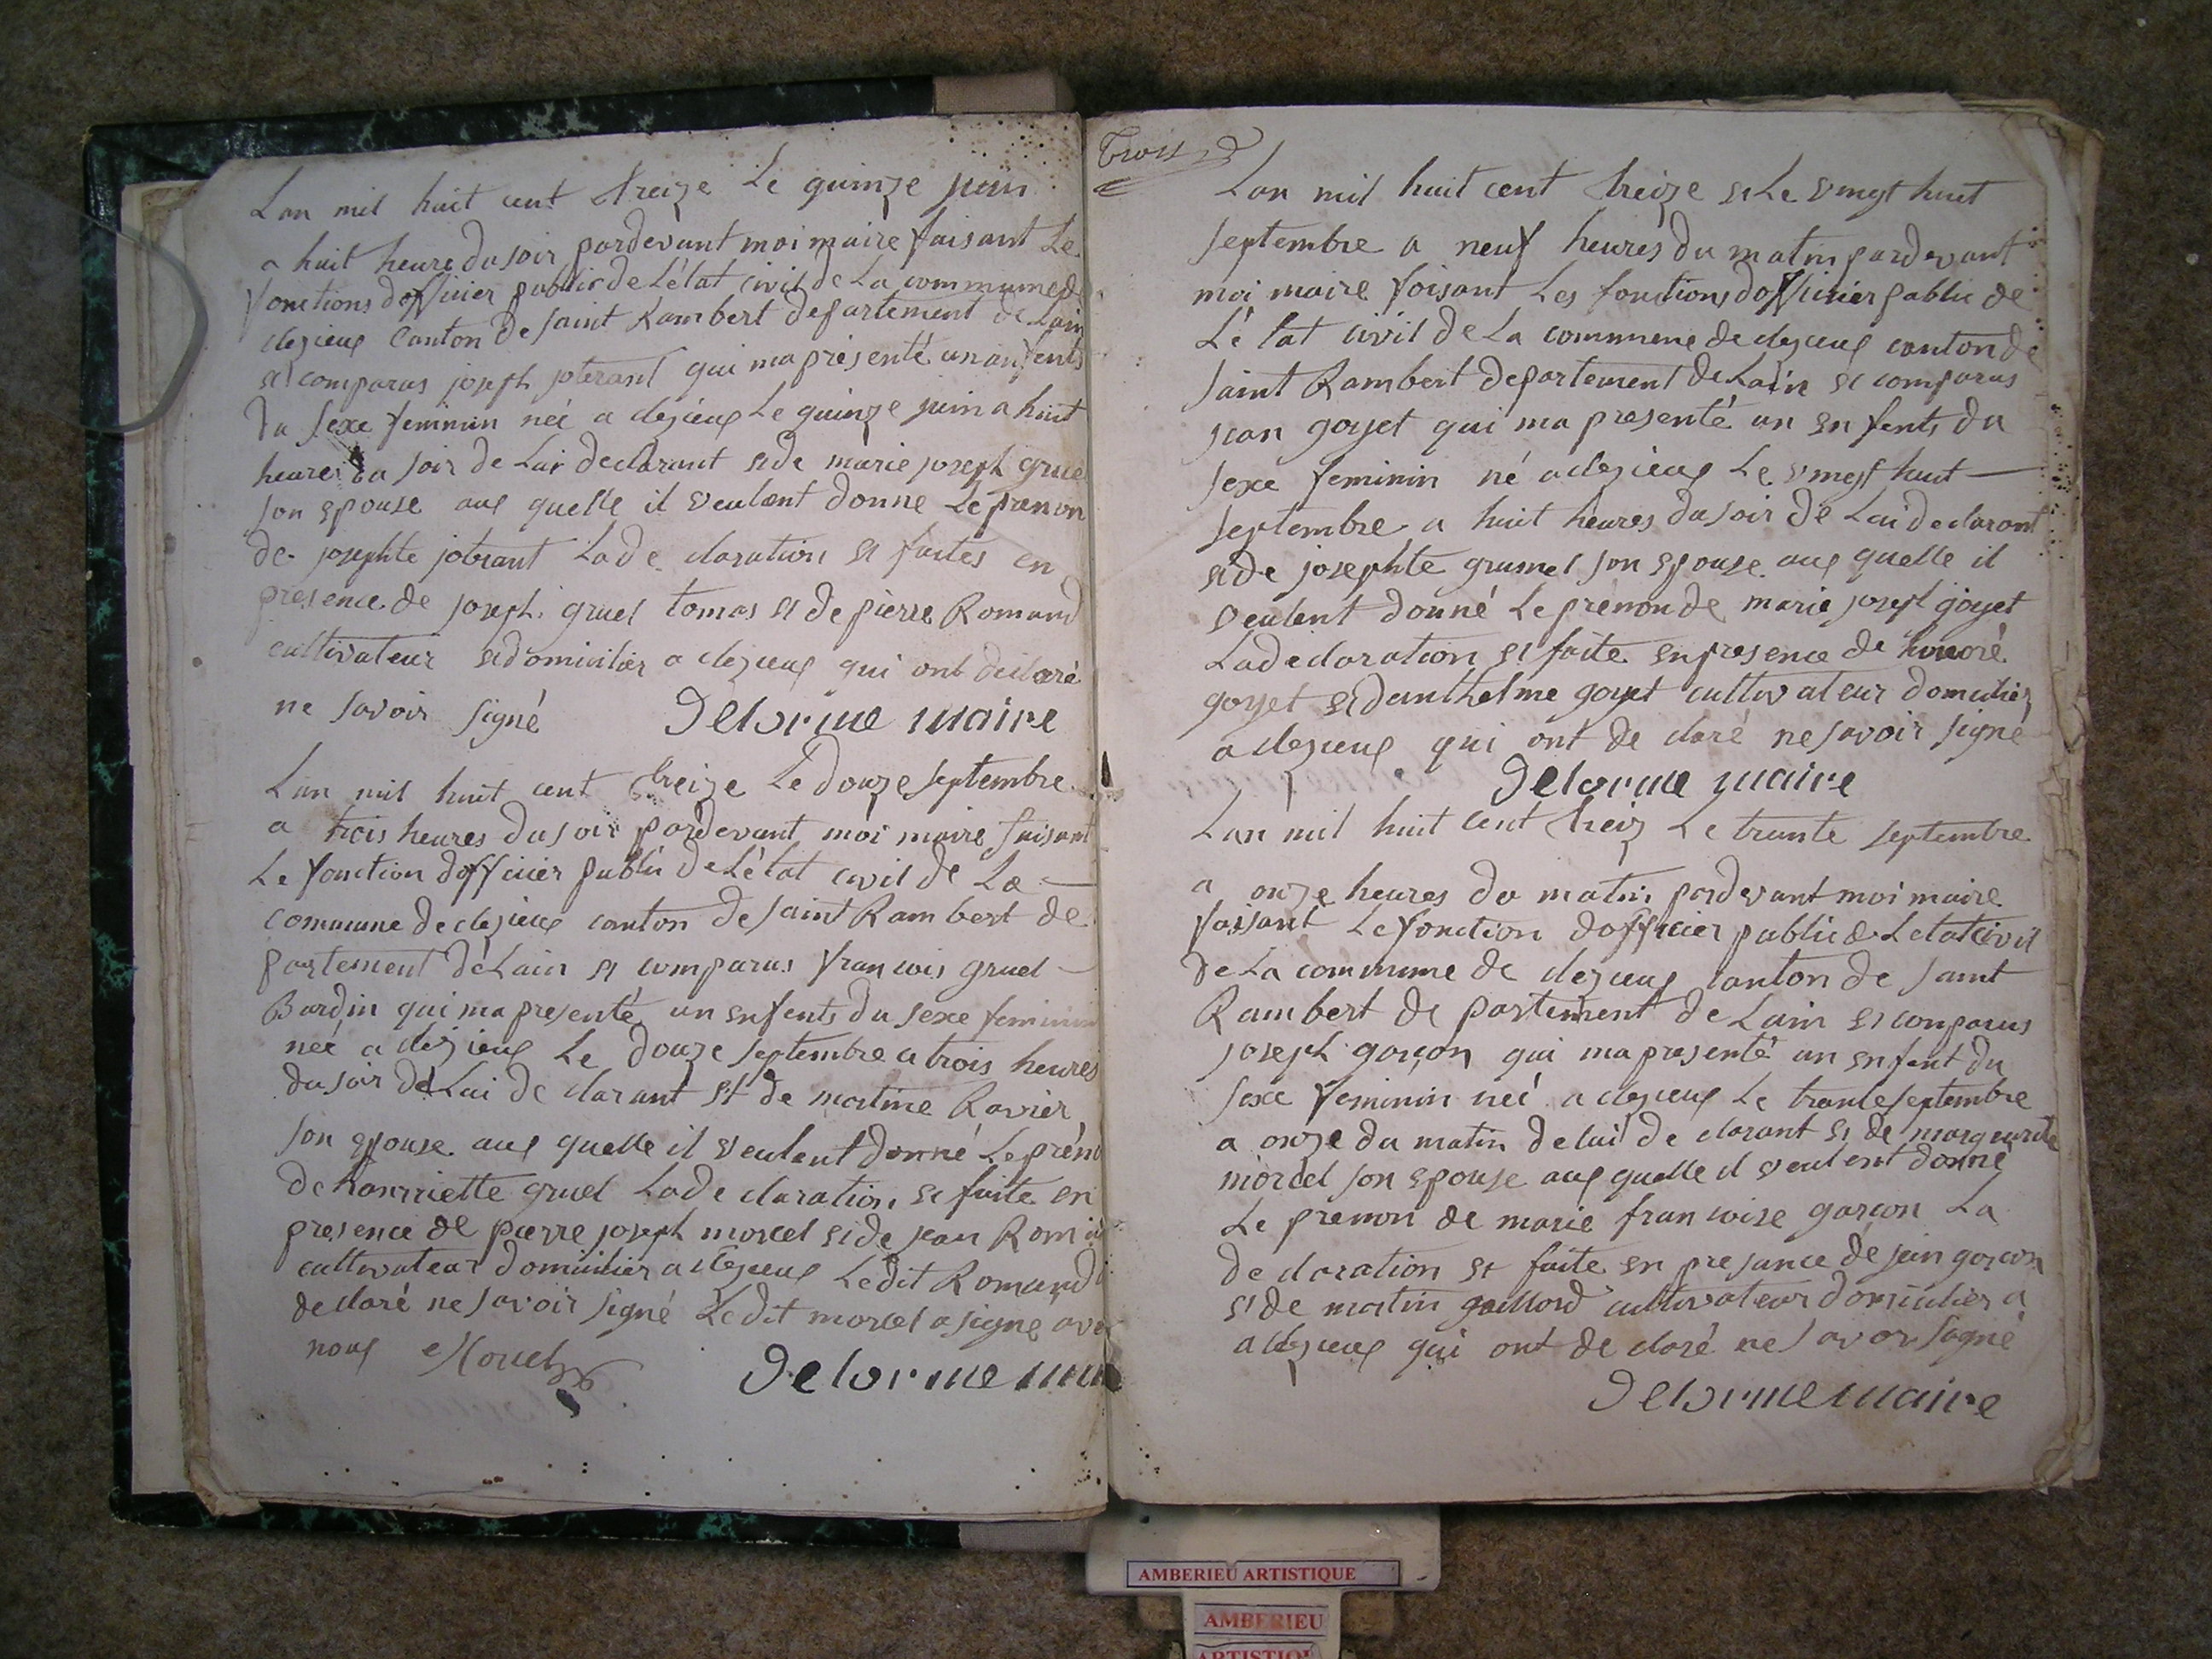 Lan mil huit cent treize Le quinze juin
a huit heure du soir pardevant moi maire faisant Le
fonctions dofficier public de Létat civil de La commune de
clezieux Canton de saint Rambert departement de Lain
et comparus joseph joterant qui ma présenté un anfents
du sexe feminin néé a clezieux Le quinze juin a huit
heures du soir de Lui declarant et de marie joseph gruel
son epouse aux quelle il veulent donne Le prenon
de josephte jotrant La de claration et faites en
presence de joseph gruel tomas et de pierre Romand
cultivateur et domicilier a clezieux qui ont declaré
ne savoir signé Delorme maire
Lan mil huit cent treize Le douze septembre
a trois heures du soir pardevant moi maire faisant
Le fonction dofficier public de Létat civil de La
commune de clezieux canton de saint Rambert de
partement de Lain et comparus francois gruel
Bardin qui ma presenté un enfents du sexe feminin
néé a clezieux Le douze septembre a trois heures
du soir de Lui de clarant et de martine Ravier
son epouse aux quelle il veulent donné Le préno
de hanrriette gruel La de claration et faite en
presence de pierre joseph morcel et de jean Roma
cultivateur domicilier a clezieux Ledit Romand
declaré ne savoir signé Ledit morcel a signe avec
nous Morcel Delorme mai
Trois
Lan mil huit cent treize et Le vingt huit
septembre a neuf heures du matin pardevant
moi maire foisant Les fonctions dofficier public de
Lé tat civil de La commune de clezieux canton de
saint Rambert departement de Lain et comparus
jean goyet qui ma presenté un enfents du
sexe feminin né a clezieux Le vingt huit
septembre a huit heures du soir de Lui declarant
et de josephte grumel son epouse aux quelle il
veulent donné Le prenon de marie joseph goyet
La declaration et faite en presence de honoré
goyet et danthelme goyet cultivateur domicilier
a clezieux qui ont de claré ne savoir signé
Delorme maire
Lan mil huit cent treiz Le trante septembre
a onze heures du matin pardevant moi maire
faisant Le fonction dofficier public de Letat civil
de La commune de clezieux canton de saint
Rambert de partement de Lain et comparus
joseph garçon qui ma presenté un enfent du
sexe feminin néé a clezieux Le trante septembre
a onze du matin de lui de clarant et de margeurite
morcel son epouse aux quelle il veulent donné
Le prenon de marie francoise garçon La
de claration et faite en presance de jean garcon
et de martin gaillard cultivateur domicilier a
a clezieux qui ont de claré ne savoir signé
Delorme maire
AMBERIEU ARTISTIQUE
AMBERIEU
ARTISTIQUE